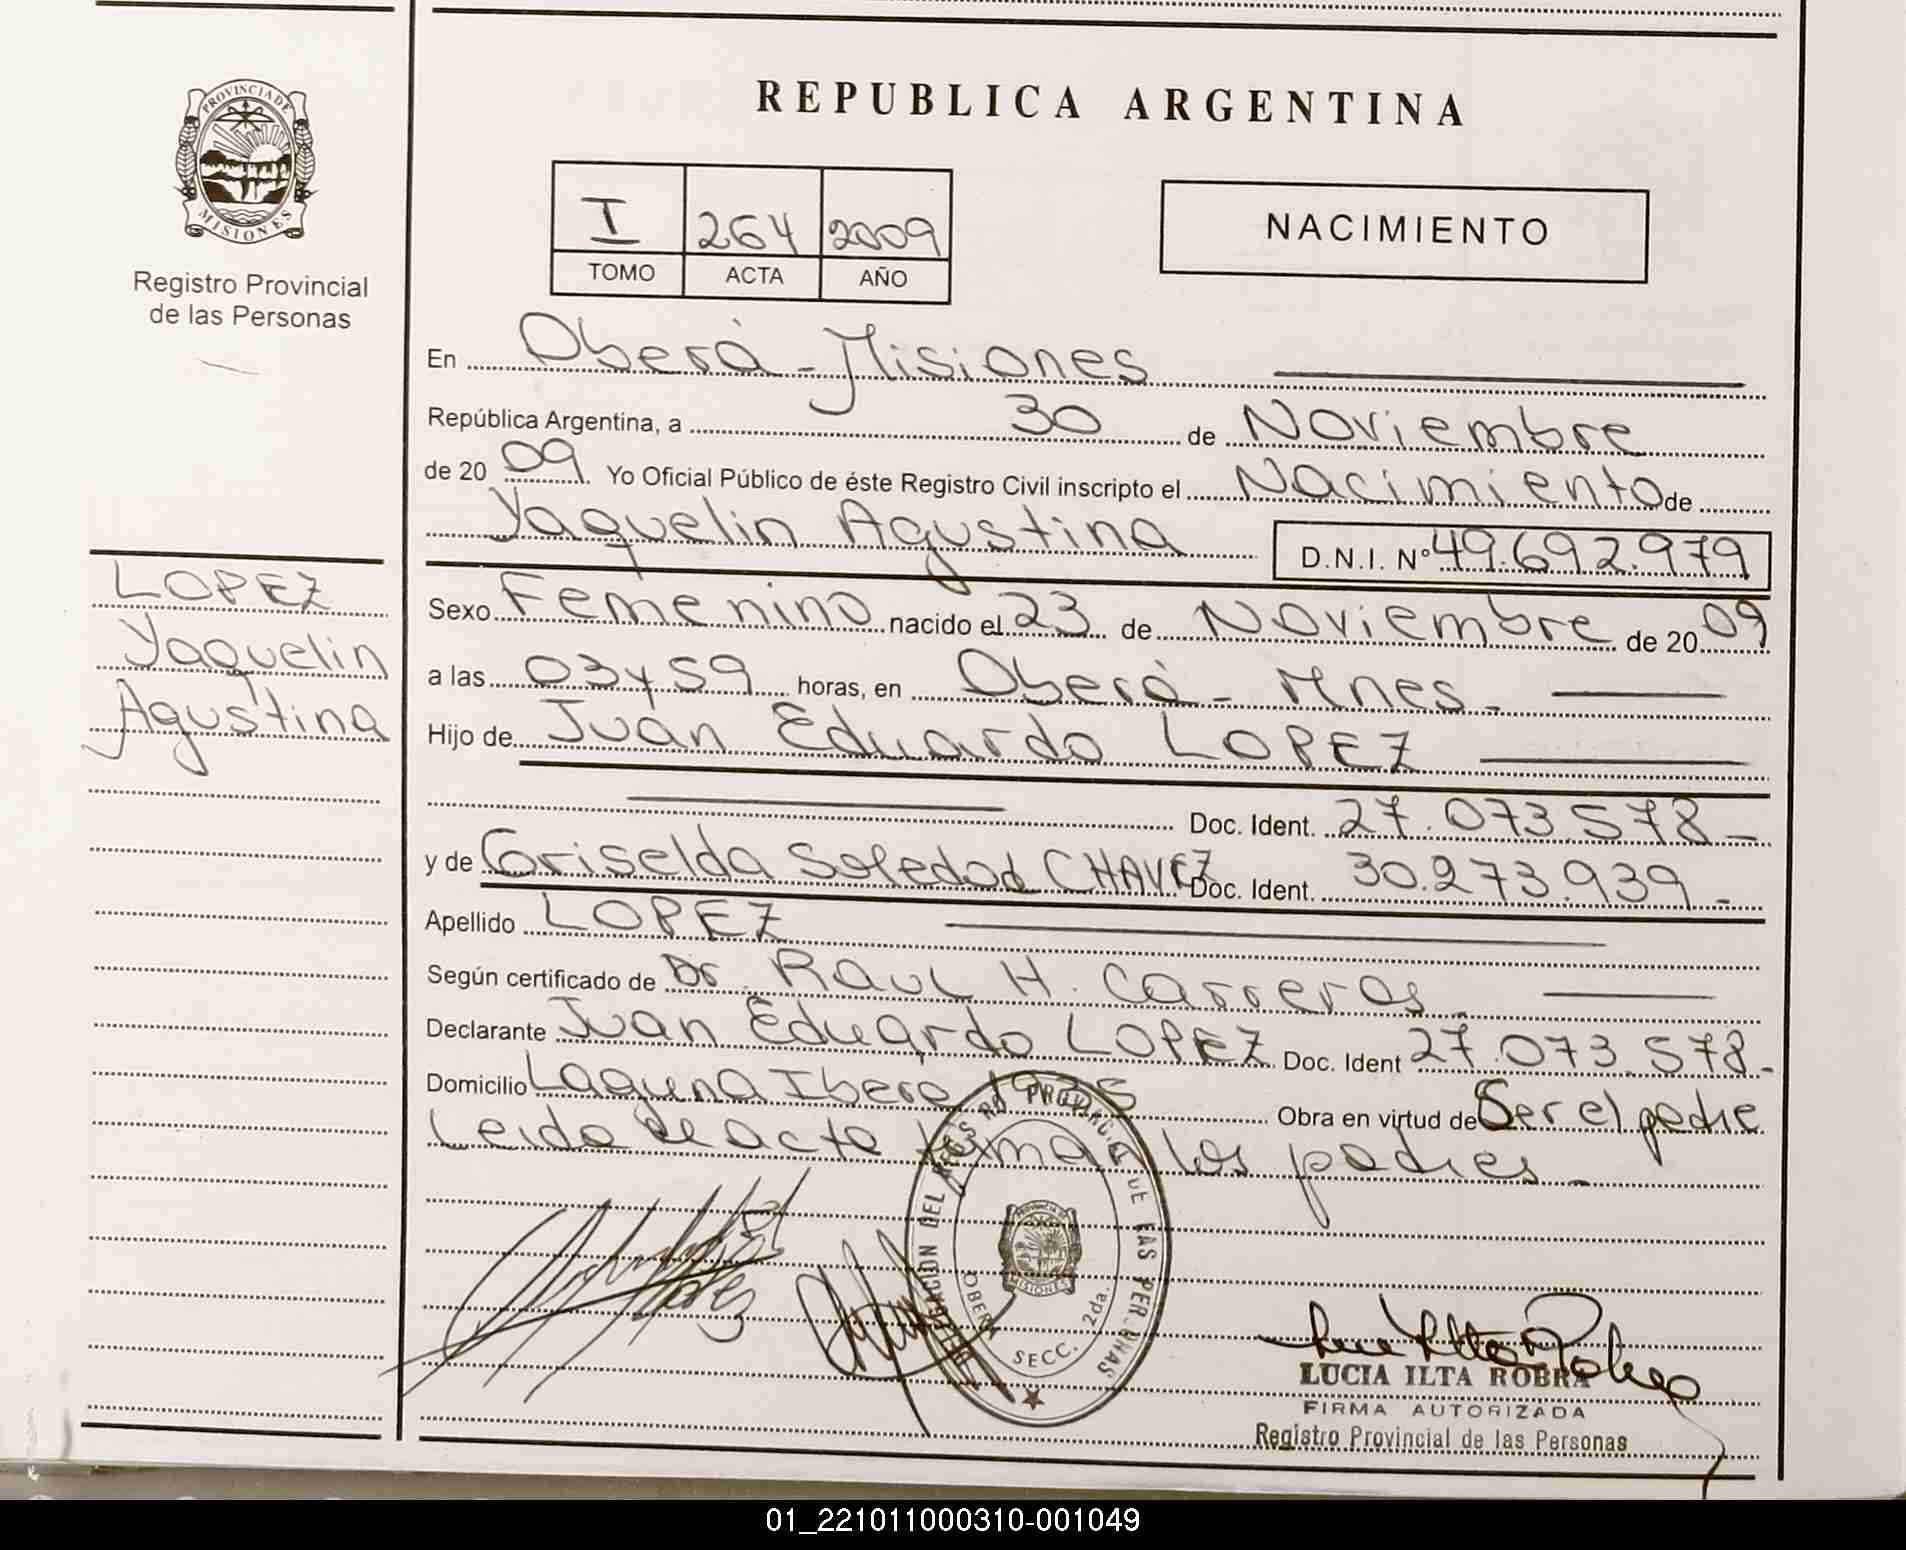 PROVINCIA DE
MISIONES
Registro Provincial
de las Personas
LOPEZ
Yaquelin
Agustina
REPUBLICA ARGENTINA
I 264 2009
TOMO ACTA AÑO
NACIMIENTO
En Oberá - Misiones
República Argentina, a 30 de Noviembre
de 2009. Yo Oficial Público de éste Registro Civil inscripto el Nacimiento de
Yaquelin Agustina D.N.I. Nº 49.692.979
Sexo Femenino nacido el 23 de Noviembre de 2009
a las 03 y 59 horas, en Oberá - Mnes.
Hijo de Juan Eduardo LOPEZ
Doc. Ident. 27.073.578 -
y de Griselda Soledad CHAVEZ Doc. Ident. 30.273.939 -
Apellido LOPEZ
Según certificado de Dr. Raul H. Carreras.
Declarante Juan Eduardo LOPEZ Doc. Ident 27.073.578.-
Domicilio Laguna Ibera 1935 Obra en virtud de Ser el padre
Leida el acta firman los padres -
DELEGACION DEL REGISTRO PROVINCIAL DE LAS PERSONAS
OBERA SECC. 2da.
PROVINCIA DE
MISIONES
LUCIA ILTA ROBRA
FIRMA AUTORIZADA
Registro Provincial de las Personas
01_221011000310-001049